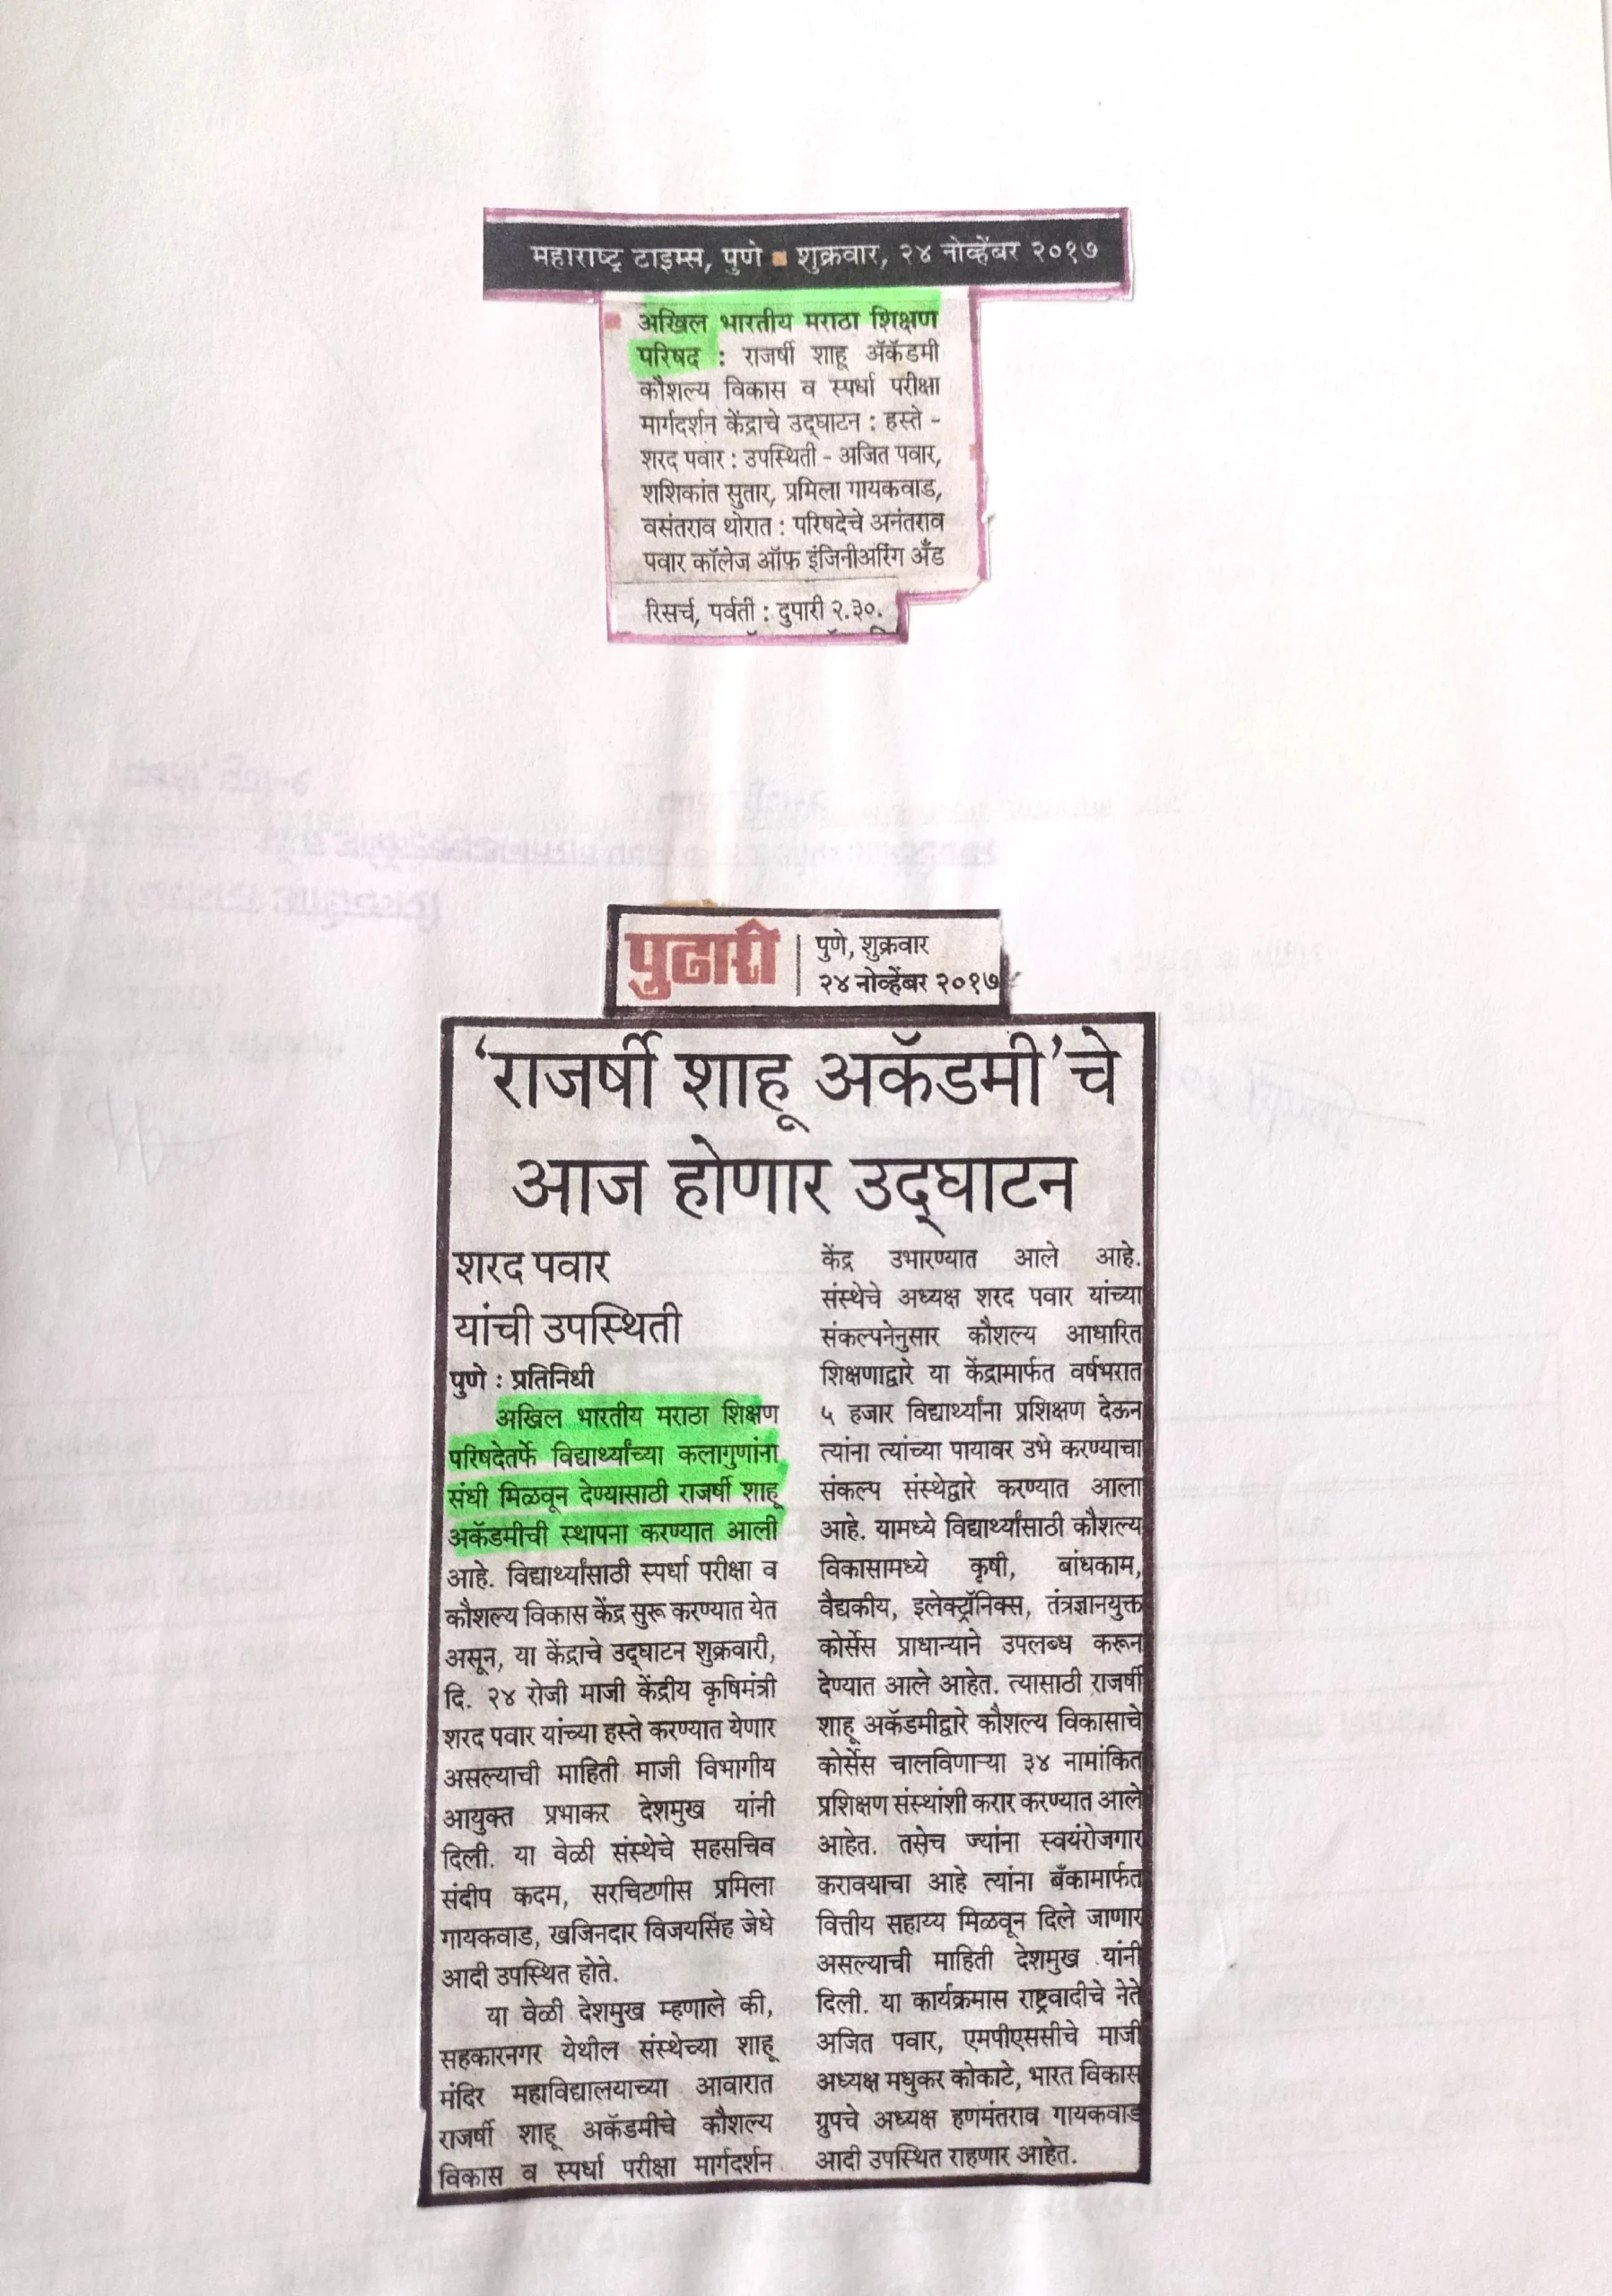 महाराष्ट्र टाइम्स, पुणे ■ शुक्रवार, २४ नोव्हेंबर २०१७
अखिल भारतीय मराठा शिक्षण
परिषद : राजर्षी शाहू ॲकॅडमी
कौशल्य विकास व स्पर्धा परीक्षा
मार्गदर्शन केंद्राचे उद्‌घाटन : हस्ते -
शरद पवार : उपस्थिती - अजित पवार,
शशिकांत सुतार, प्रमिला गायकवाड,
वसंतराव थोरात : परिषदेचे अनंतराव
पवार कॉलेज ऑफ इंजिनीअरिंग अँड
रिसर्च, पर्वती : दुपारी २.३०.
पुढारी
पुणे, शुक्रवार
२४ नोव्हेंबर २०१७
‘राजर्षी शाहू अकॅडमी’चे
आज होणार उद्‌घाटन
शरद पवार
यांची उपस्थिती
पुणे : प्रतिनिधी
अखिल भारतीय मराठा शिक्षण
परिषदेतर्फे विद्यार्थ्यांच्या कलागुणांना
संधी मिळवून देण्यासाठी राजर्षी शाहू
अकॅडमीची स्थापना करण्यात आली
आहे. विद्यार्थ्यांसाठी स्पर्धा परीक्षा व
कौशल्य विकास केंद्र सुरू करण्यात येत
असून, या केंद्राचे उद्‌घाटन शुक्रवारी,
दि. २४ रोजी माजी केंद्रीय कृषिमंत्री
शरद पवार यांच्या हस्ते करण्यात येणार
असल्याची माहिती माजी विभागीय
आयुक्त प्रभाकर देशमुख यांनी
दिली. या वेळी संस्थेचे सहसचिव
संदीप कदम, सरचिटणीस प्रमिला
गायकवाड, खजिनदार विजयसिंह जेधे
आदी उपस्थित होते.
या वेळी देशमुख म्हणाले की,
सहकारनगर येथील संस्थेच्या शाहू
मंदिर महाविद्यालयाच्या आवारात
राजर्षी शाहू अकॅडमीचे कौशल्य
विकास व स्पर्धा परीक्षा मार्गदर्शन
केंद्र उभारण्यात आले आहे.
संस्थेचे अध्यक्ष शरद पवार यांच्या
संकल्पनेनुसार कौशल्य आधारित
शिक्षणाद्वारे या केंद्रामार्फत वर्षभरात
५ हजार विद्यार्थ्यांना प्रशिक्षण देऊन
त्यांना त्यांच्या पायावर उभे करण्याचा
संकल्प संस्थेद्वारे करण्यात आला
आहे. यामध्ये विद्यार्थ्यांसाठी कौशल्य
विकासामध्ये कृषी, बांधकाम,
वैद्यकीय, इलेक्ट्रॉनिक्स, तंत्रज्ञानयुक्त
कोर्सेस प्राधान्याने उपलब्ध करून
देण्यात आले आहेत. त्यासाठी राजर्षी
शाहू अकॅडमीद्वारे कौशल्य विकासाचे
कोर्सेस चालविणाऱ्या ३४ नामांकित
प्रशिक्षण संस्थांशी करार करण्यात आले
आहेत. तसेच ज्यांना स्वयंरोजगार
करावयाचा आहे त्यांना बँकामार्फत
वित्तीय सहाय्य मिळवून दिले जाणार
असल्याची माहिती देशमुख यांनी
दिली. या कार्यक्रमास राष्ट्रवादीचे नेते
अजित पवार, एमपीएससीचे माजी
अध्यक्ष मधुकर कोकाटे, भारत विकास
ग्रुपचे अध्यक्ष हणमंतराव गायकवाड
आदी उपस्थित राहणार आहेत.